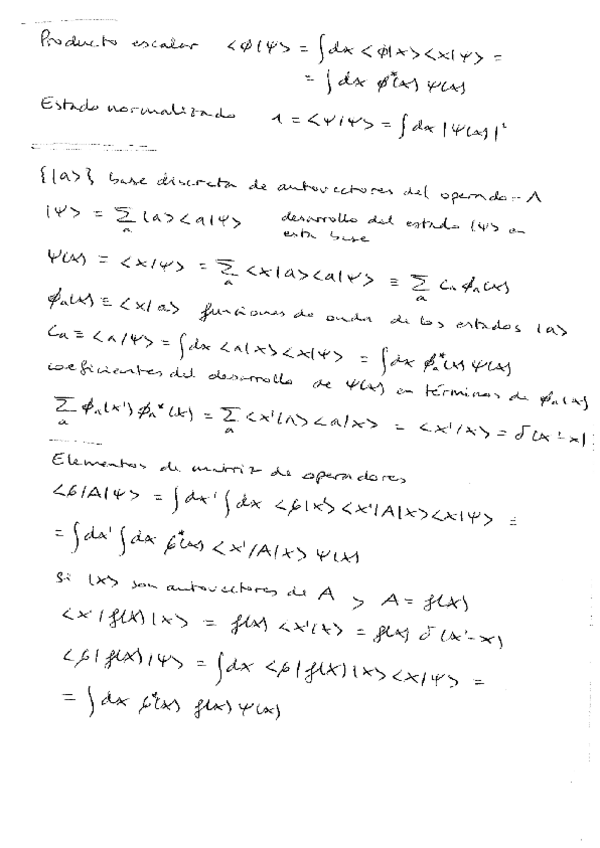 Producto escalar <φ|ψ> = ∫dx <φ|x><x|ψ> =
= ∫dx φ*(x) ψ(x)
Estado normalizado 1 = <ψ|ψ> = ∫dx |ψ(x)|²
{|a>} base discreta de autovectores del operador A
|ψ> = Σₐ |a><a|ψ> desarrollo del estado |ψ> en
esta base
ψ(x) = <x|ψ> = Σₐ <x|a><a|ψ> ≡ Σₐ cₐ φₐ(x)
φₐ(x) ≡ <x|a> funciones de onda de los estados |a>
cₐ ≡ <a|ψ> = ∫dx <a|x><x|ψ> = ∫dx φₐ*(x) ψ(x)
coeficientes del desarrollo de ψ(x) en términos de φₐ(x)
Σₐ φₐ(x') φₐ*(x) = Σₐ <x'|a><a|x> = <x'|x> = δ(x'-x)
Elementos de matriz de operadores
<φ|A|ψ> = ∫dx' ∫dx <φ|x'><x'|A|x><x|ψ> ≡
= ∫dx' ∫dx φ*(x) <x'|A|x> ψ(x)
Si |x> son autovectores de A > A = f(X)
<x'|f(X)|x> = f(x) <x'|x> = f(x) δ(x'-x)
<φ|f(X)|ψ> = ∫dx <φ|f(X)|x><x|ψ> =
= ∫dx φ*(x) f(x) ψ(x)